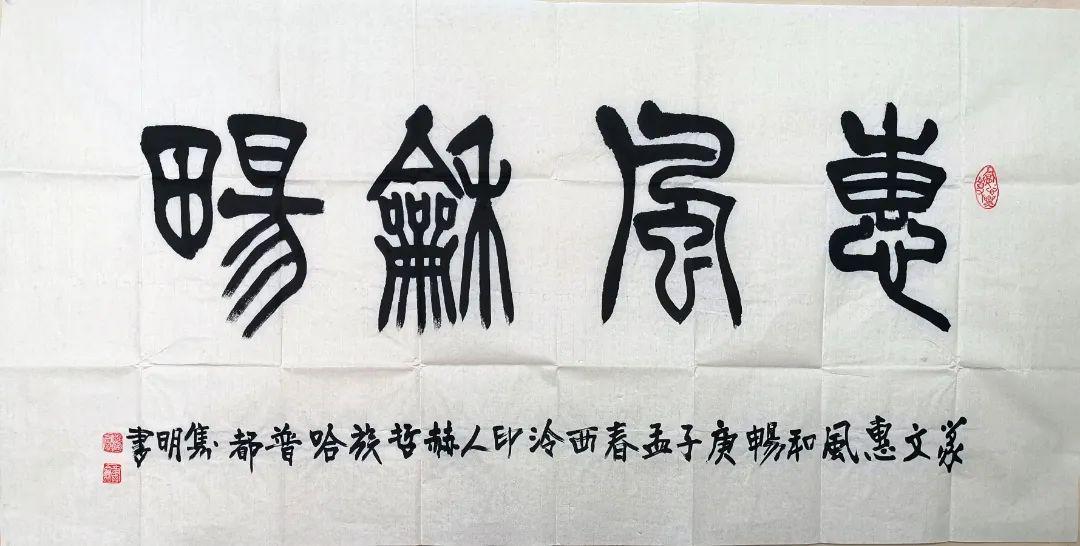 惠風龢畼
篆文惠風和暢庚子孟春西泠印人赫哲族哈普都·隽明書